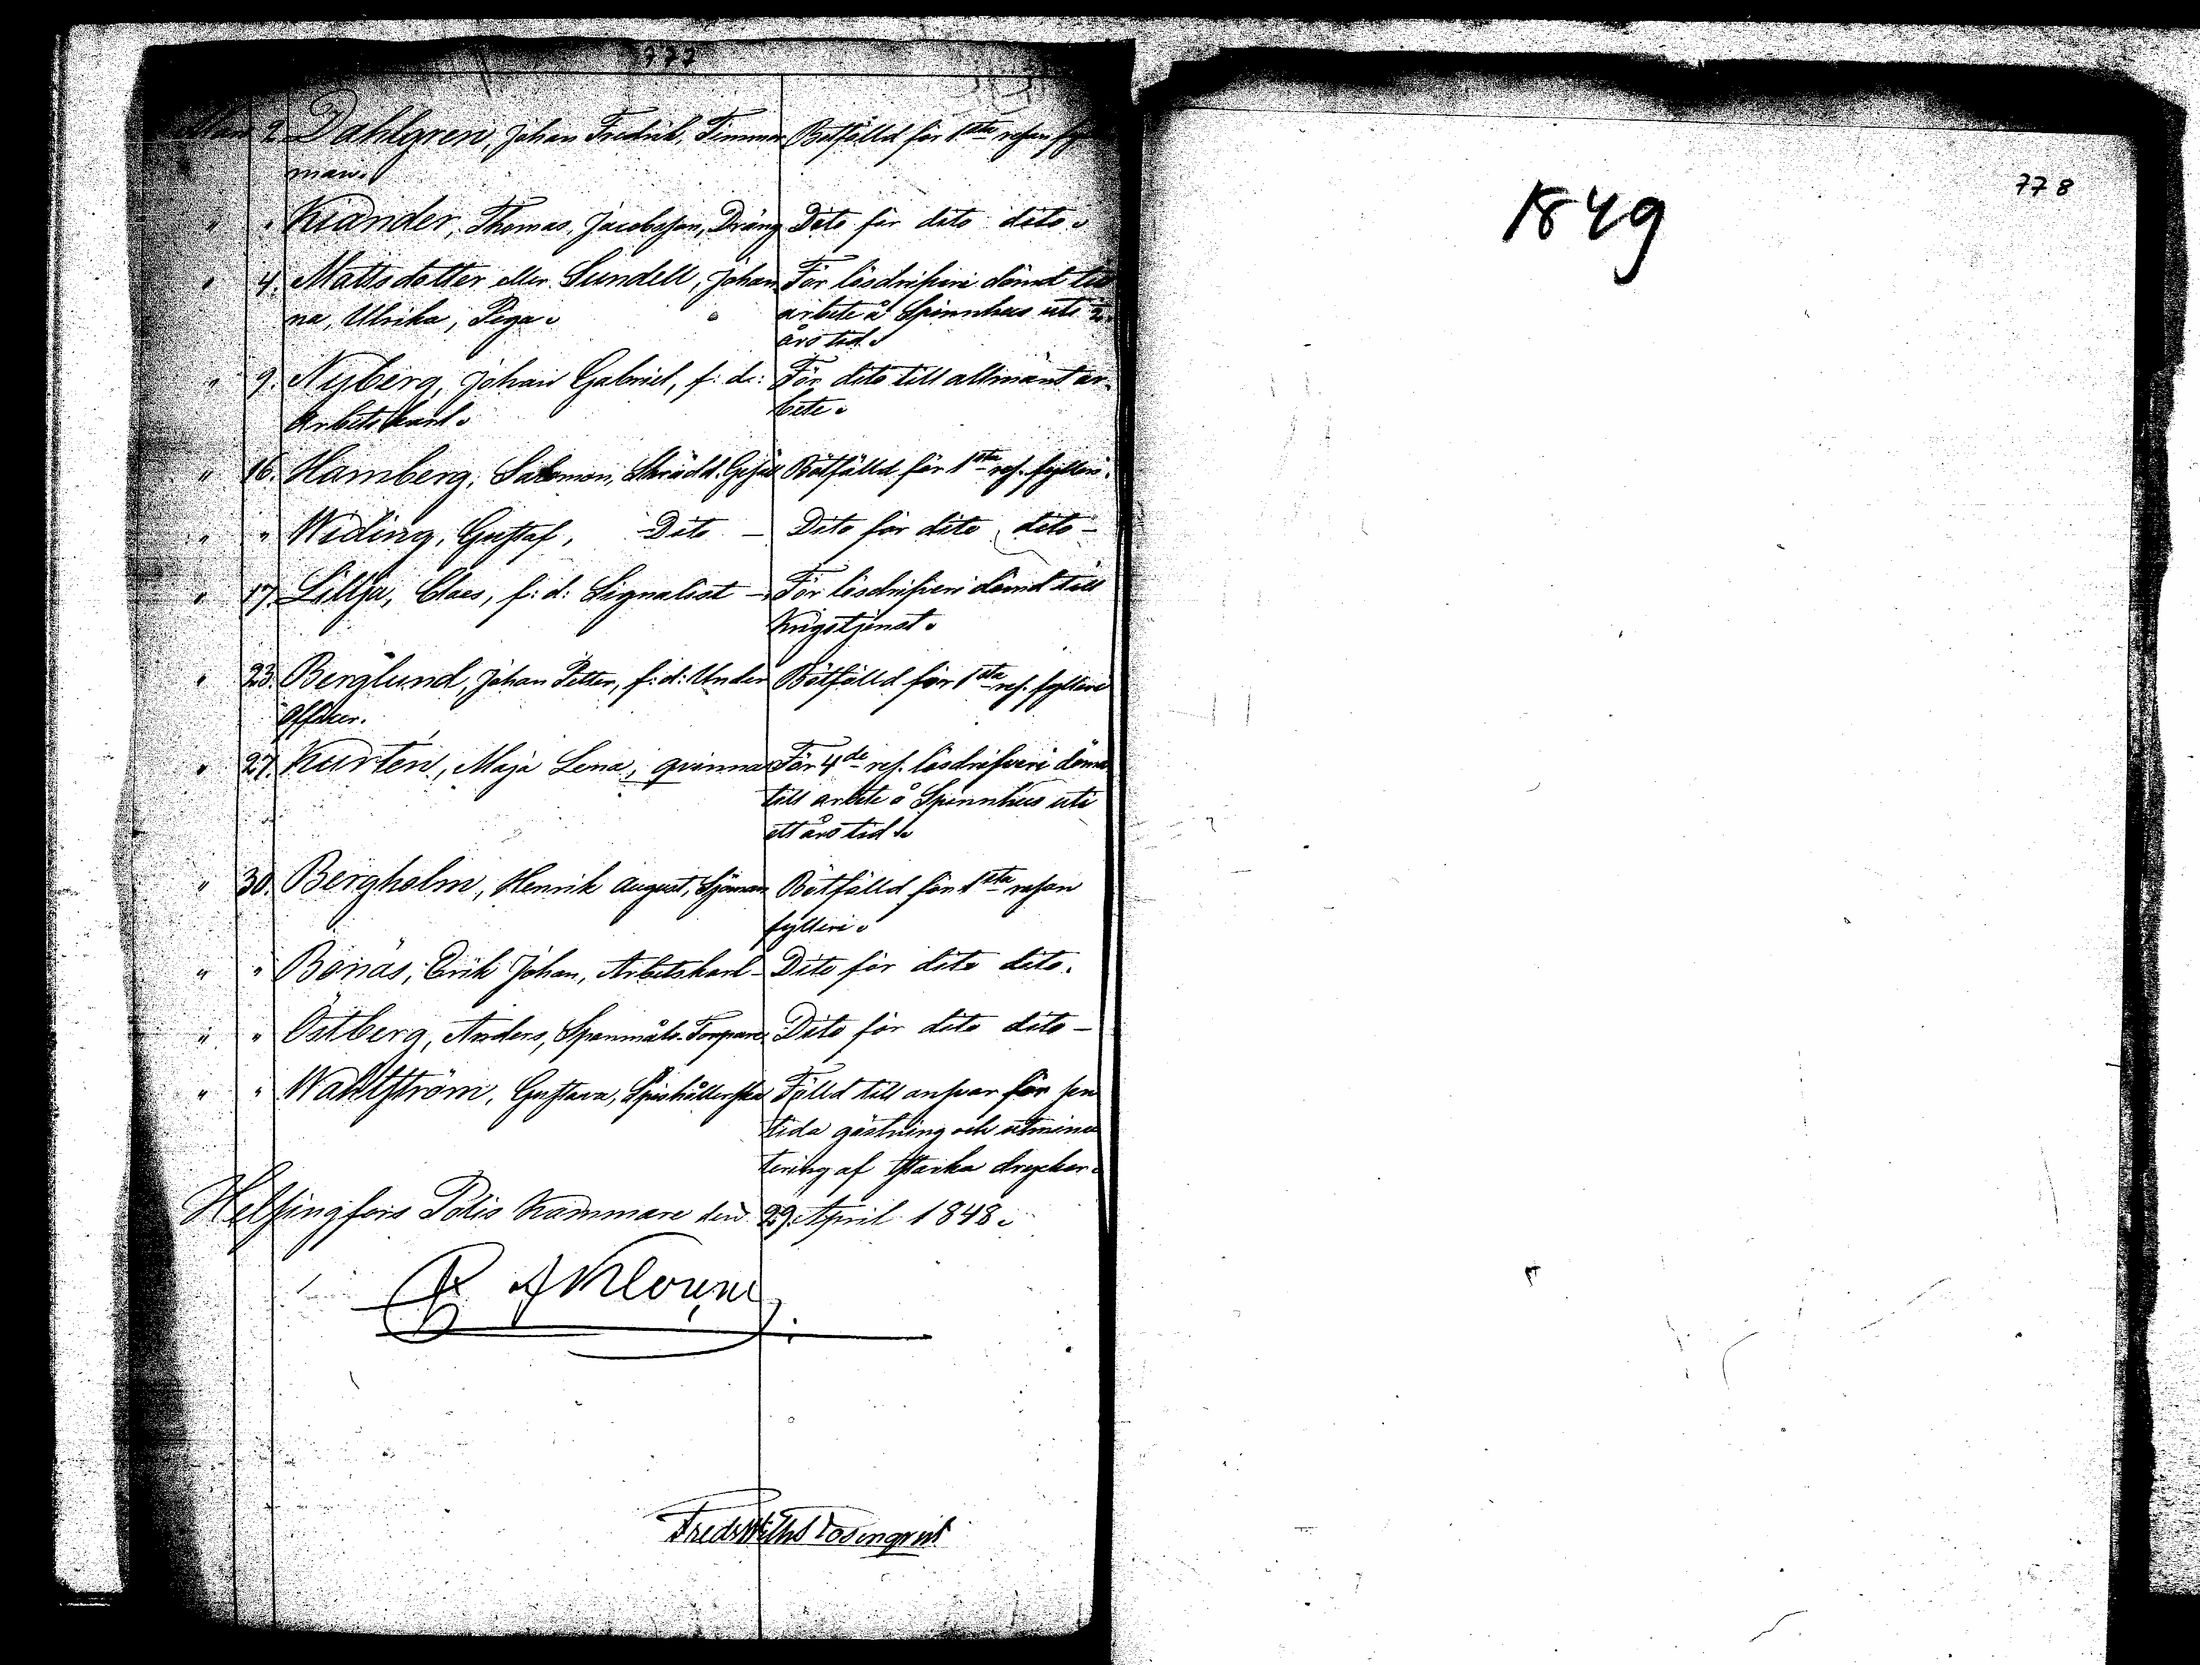 777
Mars 2. Dahlgren, Johan Fredrik, Timmer Bötfälld för 1sta resan fyl
man.
" " Kiander, Thomas, Jacobsson, Dräng Dito för dito dito.
" 4. Mattsdotter eller Sundell, Johan För lösdrifveri dömd till
na, Ulrika, Piga. arbete å Spinnhus uti 2
års tid.
" 9. Nyberg, Johan Gabriel, f: d: För dito till allmänt ar-
Arbetskarl. bete.
" 16. Hamberg, Salomon, Skrädd. Gesäll Bötfälld för 1sta res. fylleri.
" " Widing, Gustaf, Dito — Dito för dito dito —
" 17. Lillja, Claes, f: d: Signalist — För lösdrifveri dömd till
Krigstjenst.
" 23. Berglund, Johan Petter, f: d: Under Bötfälld för 1sta res. fylleri
Officer.
" 27. Kurtén, Maja Lena, qvinna För 4de res. lösdrifveri dömd
till arbete å Spinnhus uti
ett års tid.
" 30. Bergholm, Henrik August, Sjöman Bötfälld för 1sta resan
fylleri.
" " Bonäs, Erik Johan, Arbetskarl — Dito för dito dito.
" " Östberg, Anders, Spanmåls-Torpare Dito för dito dito —
" " Wahlström, Gustava, Spishållerska Fälld till ansvar för sen
tida gästning och utminu
tering af starka drycker.
Helsingfors Polis Kammare den 29 April 1848.
Fredr Wilh Rosenqvist
1849
778